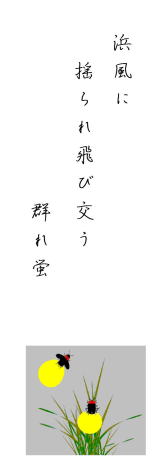 浜風に
揺られ飛び交う
群れ蛍